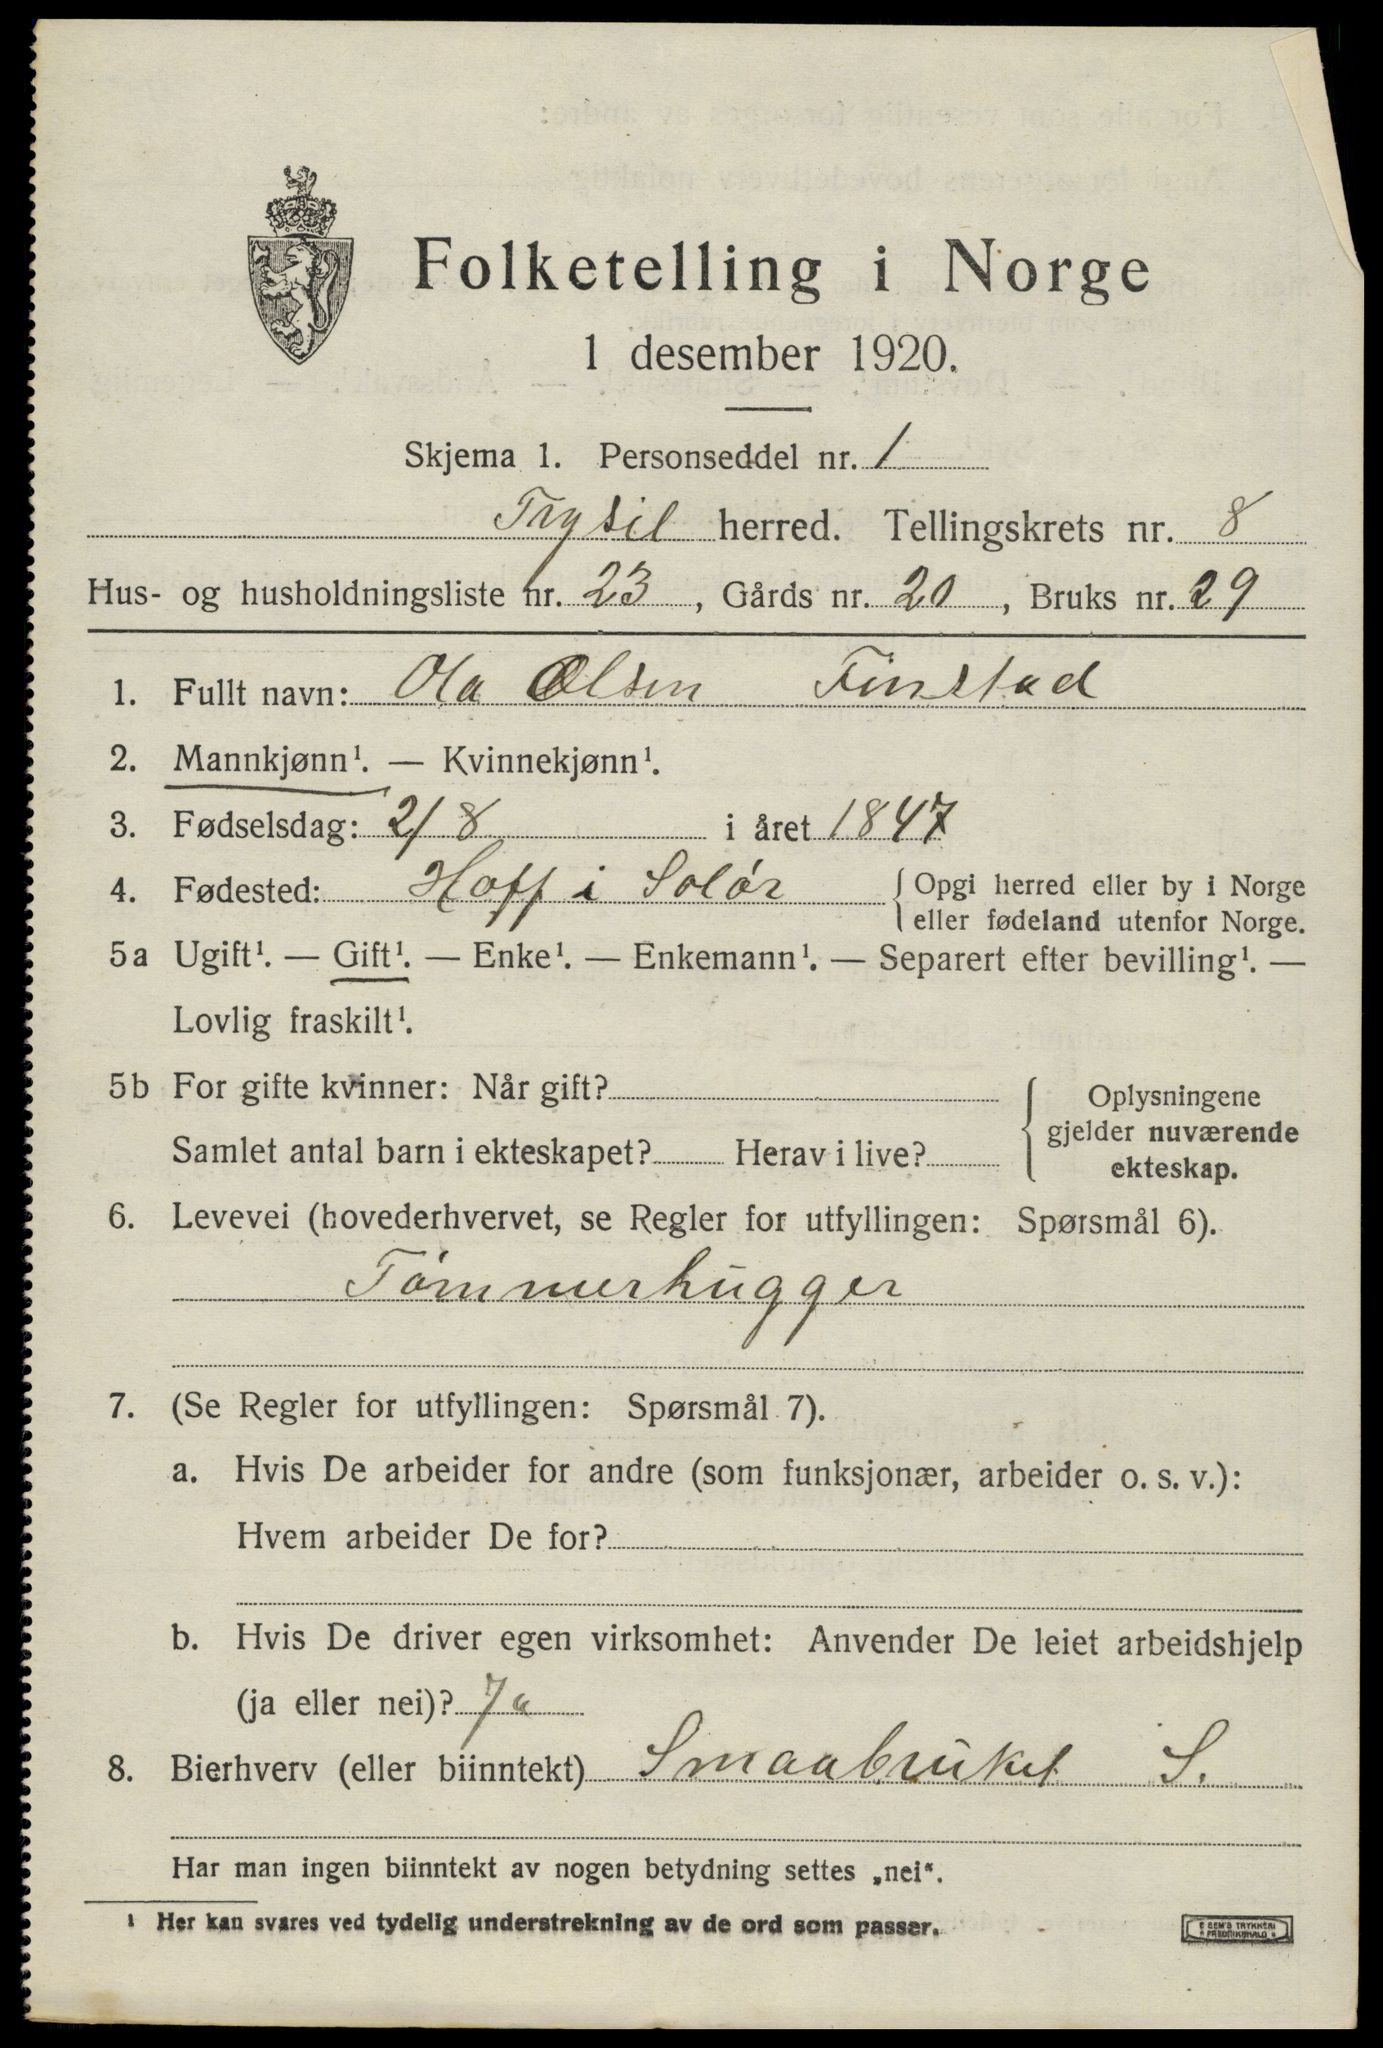 Folketelling i Norge
1 desember 1920.
Skjema 1. Personseddel nr. 1
Trysil herred. Tellingskrets nr. 8
Hus- og husholdningsliste nr. 23, Gårds nr. 20, Bruks nr. 29
1. Fullt navn: Ola Olsen Finstad
2. Mannkjønn¹. — Kvinnekjønn¹.
3. Fødselsdag: 2/8 i året 1847
4. Fødested: Hoff i Solør { Opgi herred eller by i Norge
eller fødeland utenfor Norge.
5a Ugift¹. — Gift¹. — Enke¹. — Enkemann¹. — Separert efter bevilling¹. —
Lovlig fraskilt¹.
5b For gifte kvinner: Når gift? Oplysningene
gjelder nuværende
Samlet antal barn i ekteskapet? Herav i live? ekteskap.
6. Levevei (hovederhvervet, se Regler for utfyllingen: Spørsmål 6).
Tømmerhugger
7. (Se Regler for utfyllingen: Spørsmål 7).
a. Hvis De arbeider for andre (som funksjonær, arbeider o. s. v.):
Hvem arbeider De for?
b. Hvis De driver egen virksomhet: Anvender De leiet arbeidshjelp
(ja eller nei)? Ja
8. Bierhverv (eller biinntekt) Smaabruket S.
Har man ingen biinntekt av nogen betydning settes „nei“.
¹ Her kan svares ved tydelig understrekning av de ord som passer.
E SEM'S TRYKKERI
FREDRIKSHALD